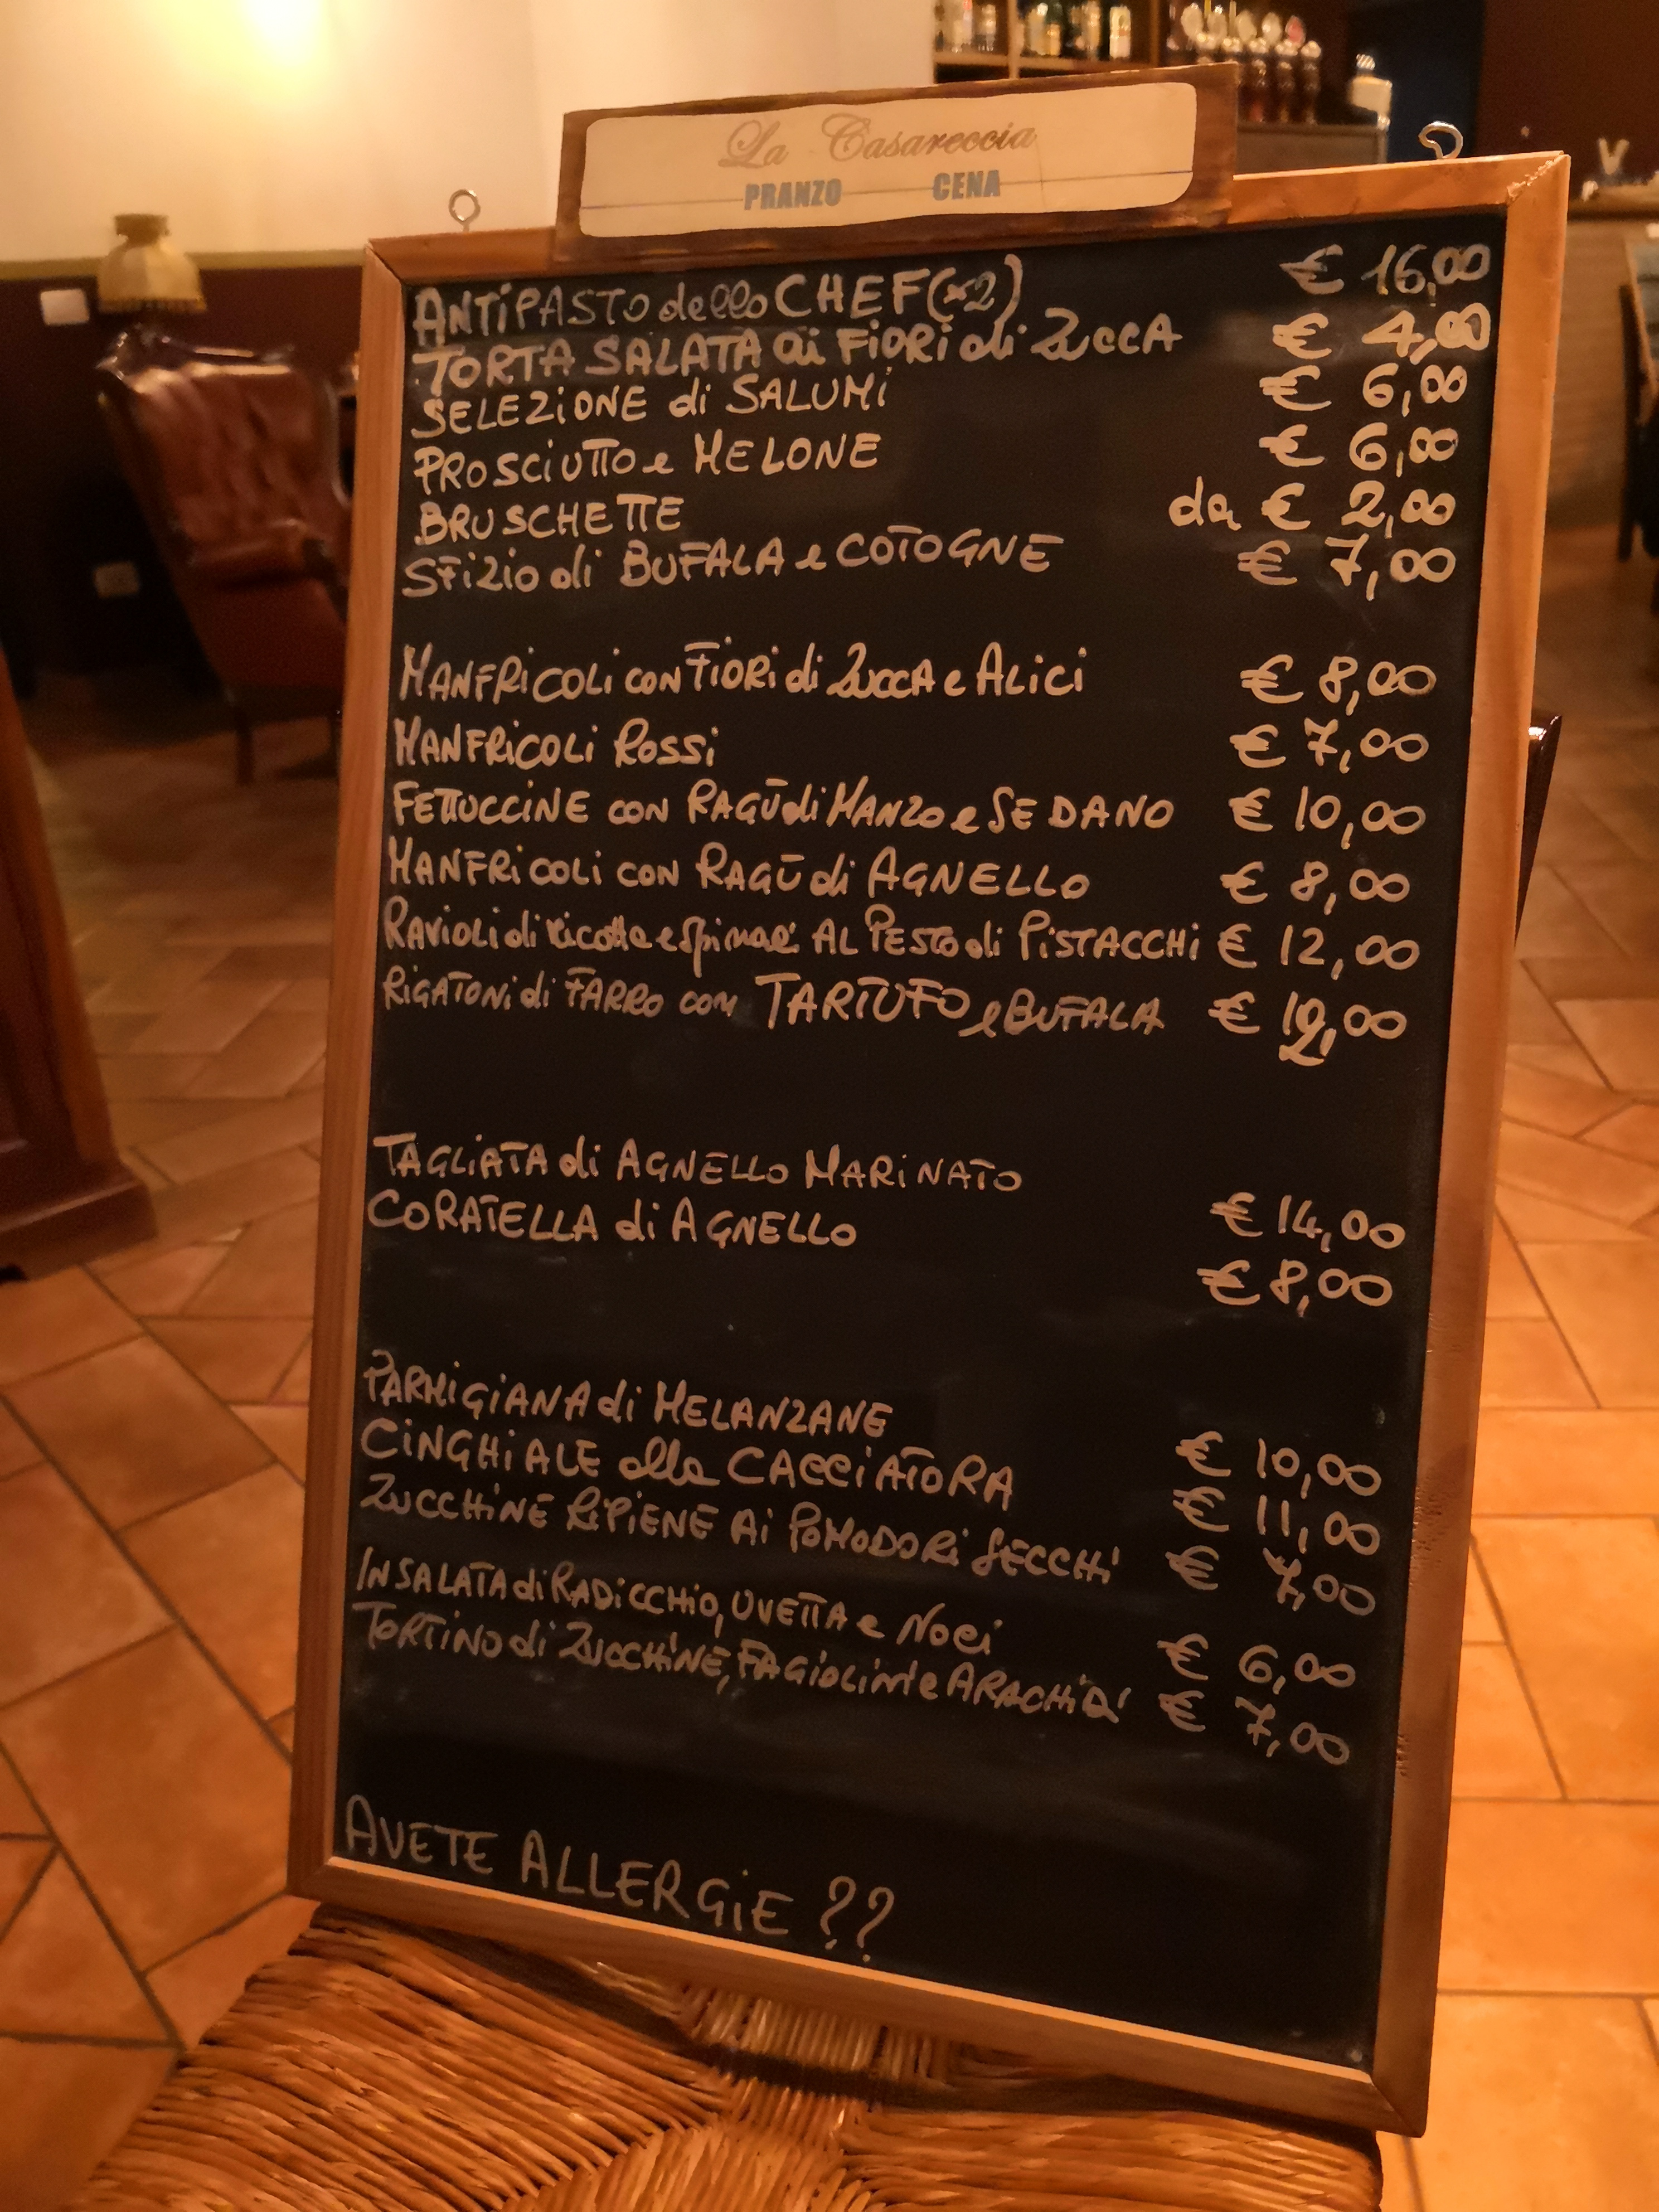 La Casareccia
PRANZO CENA
ANTIPASTO dello CHEF (x2) € 16,00
TORTA SALATA ai FIORI di ZUCCA € 4,00
SELEZIONE di SALUMI € 6,00
PROSCIUTTO e MELONE € 6,00
BRUSCHETTE da € 2,00
SFIZIO di BUFALA e COTOGNE € 7,00
MANFRICOLI CON FIORI di ZUCCA e ALICI € 8,00
MANFRICOLI ROSSI € 7,00
FETTUCCINE CON RAGÙ di MANZO e SEDANO € 10,00
MANFRICOLI CON RAGÙ di AGNELLO € 8,00
RAVIOLI di ricotta e spinaci AL PESTO di PISTACCHI € 12,00
RIGATONI di FARRO con TARTUFO e BUFALA € 12,00
TAGLIATA di AGNELLO MARINATO € 14,00
CORATELLA di AGNELLO € 8,00
PARMIGIANA di MELANZANE € 10,00
CINGHIALE alla CACCIATORA € 11,00
ZUCCHINE RIPIENE AI POMODORI SECCHI € 7,00
INSALATA di RADICCHIO, UVETTA e NOCI € 6,00
TORTINO di ZUCCHINE, FAGIOLINI e ARACHIDI € 7,00
AVETE ALLERGIE ??